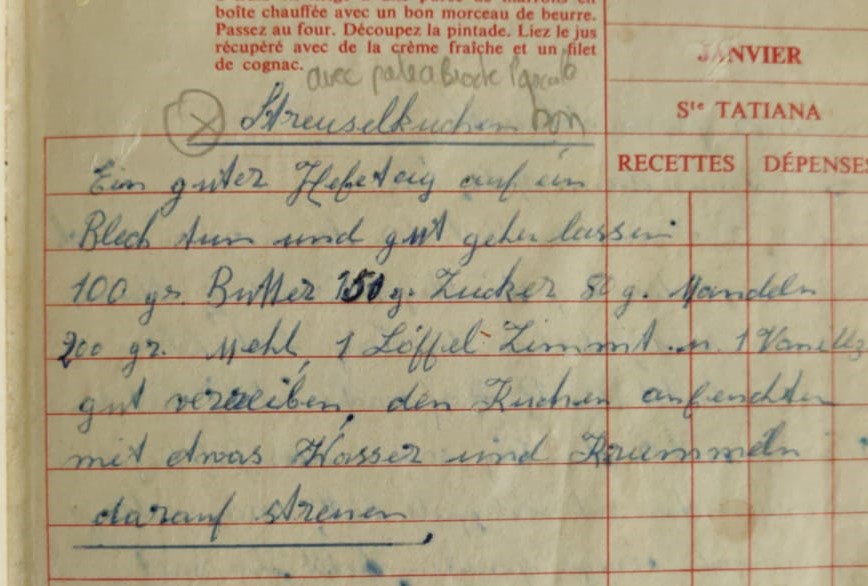 boîte chauffée avec un bon morceau de beurre.
Passez au four. Découpez la pintade. Liez le jus
récupéré avec de la crème fraîche et un filet
de cognac.
avec
JANVIER
Ste TATIANA
Streuselkuchen bon
RECETTES DÉPENSES
Ein guter Hefeteig auf ein
Blech tun und gut gehen lassen
100 gr. Butter 150 g. Zucker 80 g. Mandeln
200 gr. Mehl, 1 Löffel Zimmt u. 1 Vanillz
gut verreiben, den Kuchen anfeuchten
mit etwas Wasser und Krummeln
darauf streuen,